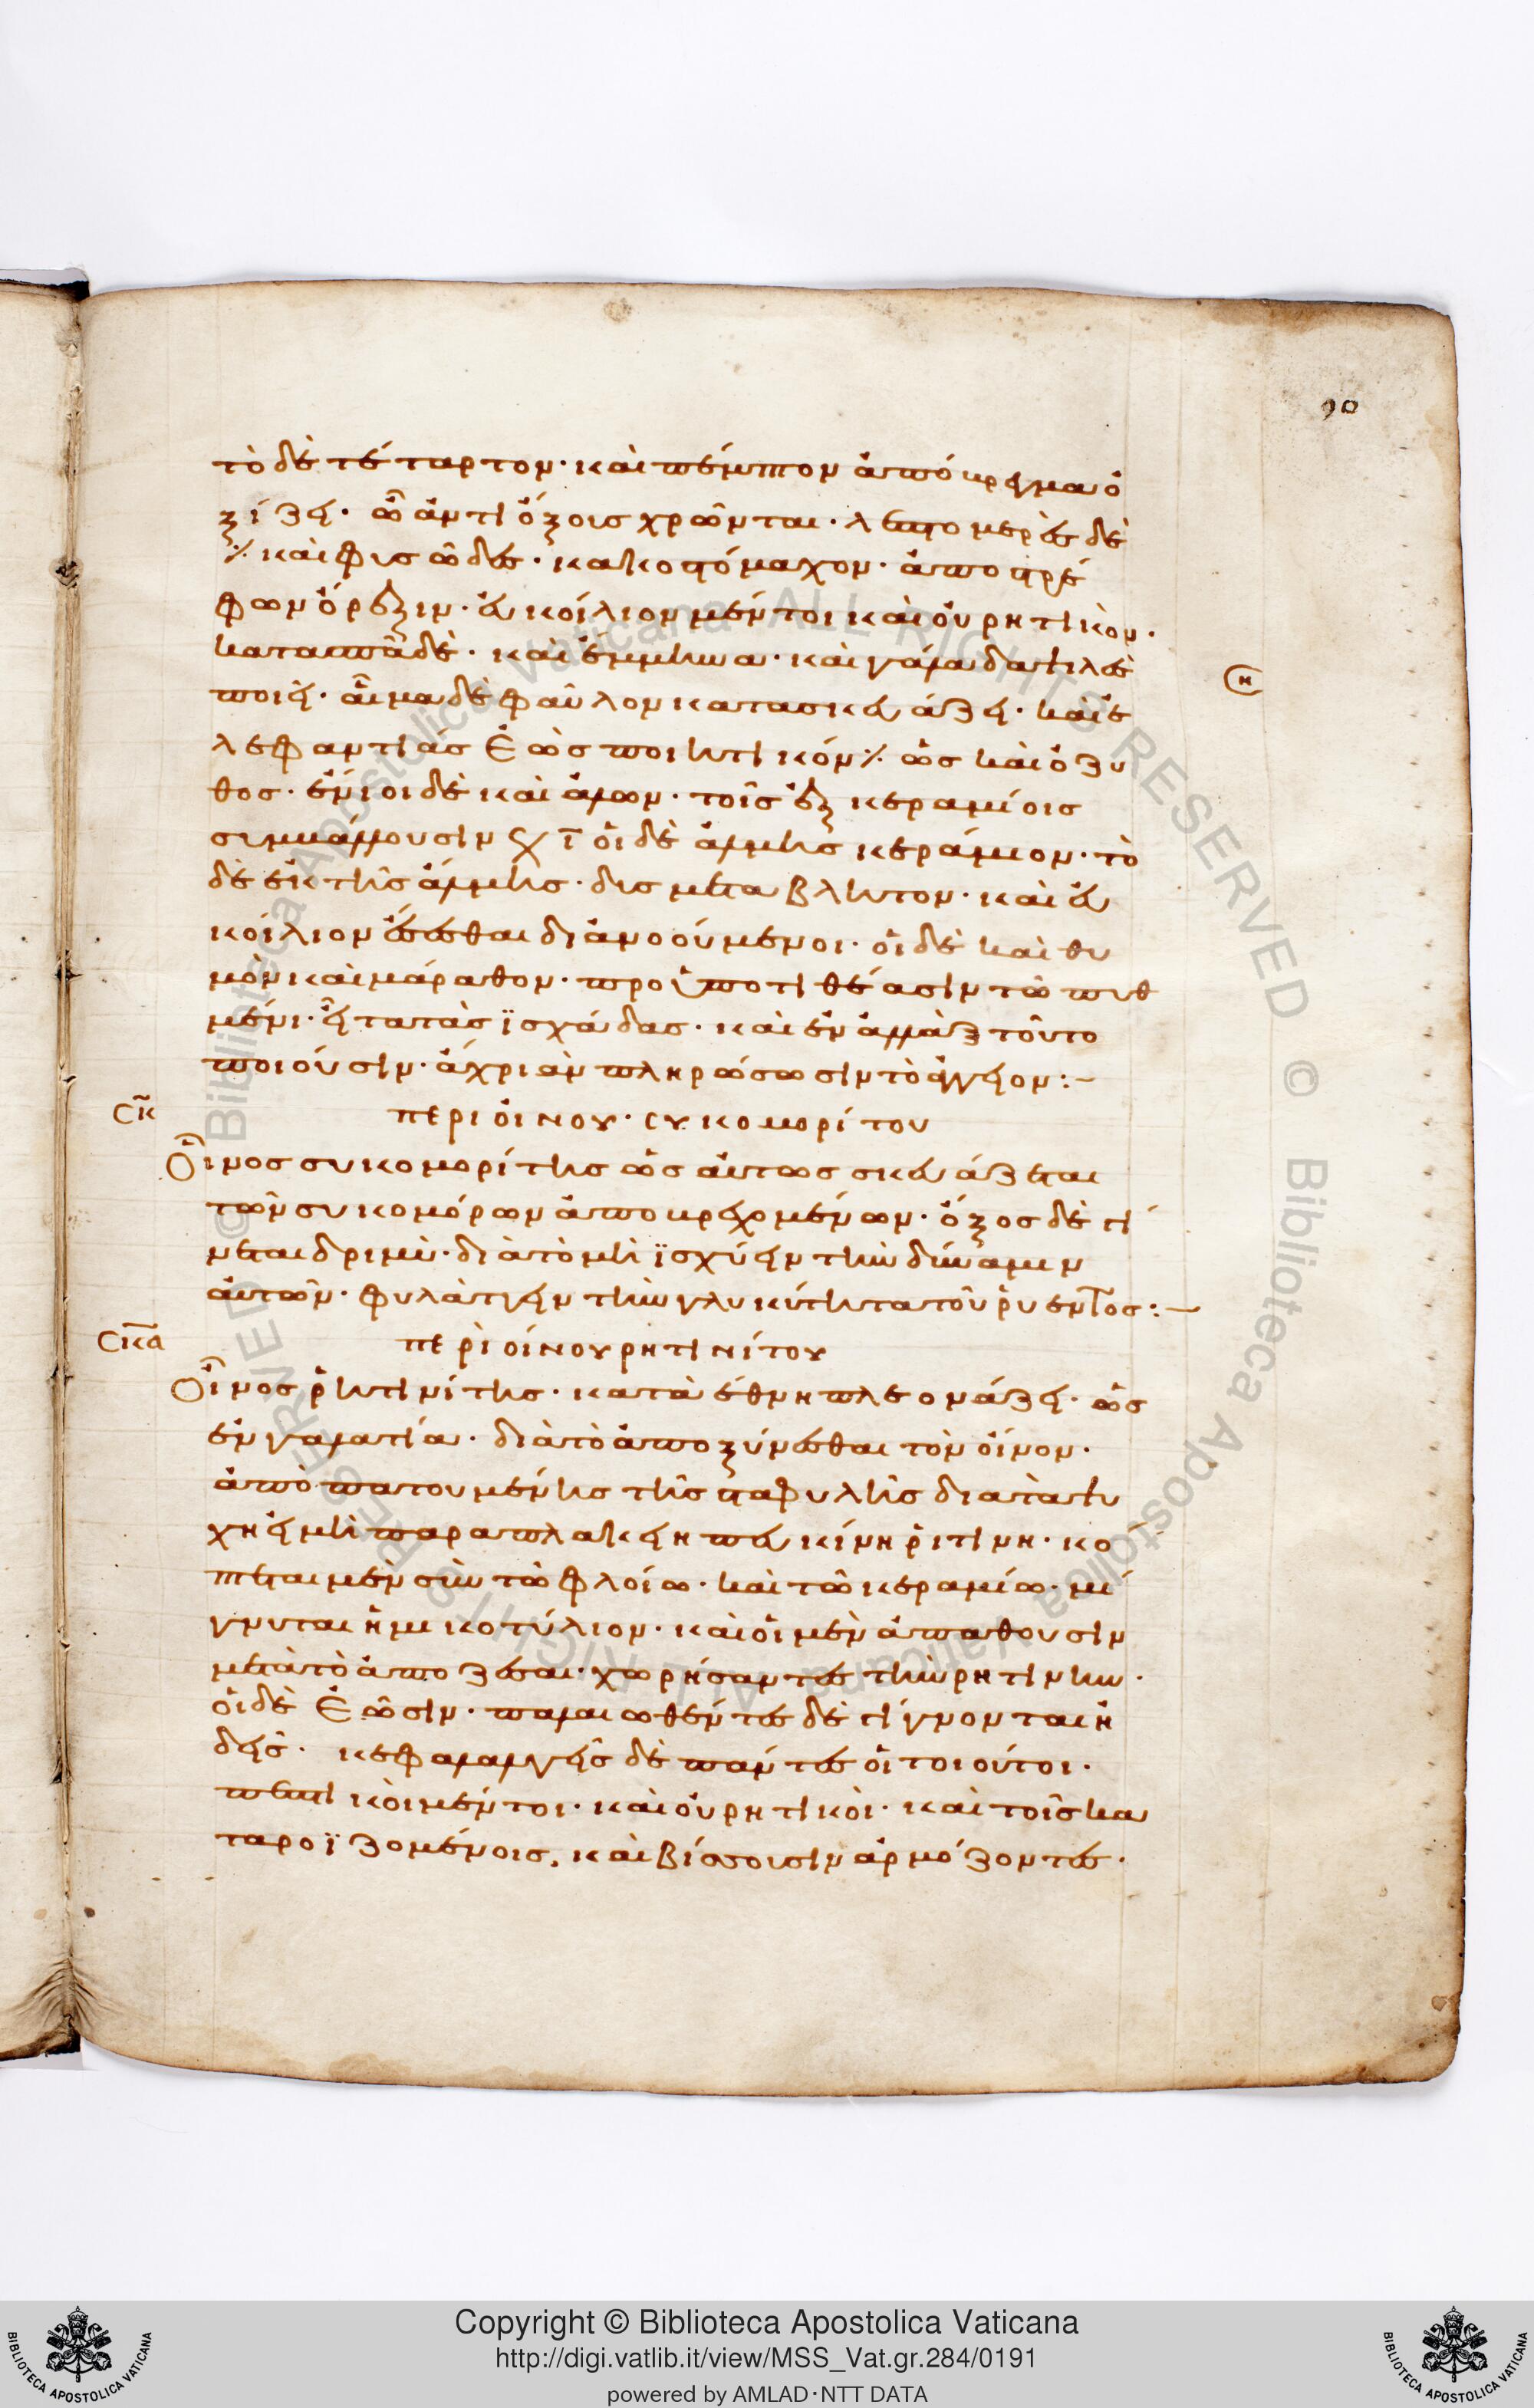 90
τὸ δὲ τέταρτον· καὶ πέμπτον ἀπόκρηγμα ὀ
ξίζει· ὧ ἀντὶ ὄξους χρῶνται· λεπτομερὲς δὲ
./. καὶ φυσῶδες· κακοστόμαχον· ἀποστρέ
φων ὄρεξιν· εὐκοίλιον μέντοι καὶ οὐρητικὸν·
κατασπᾶ δὲ· καὶ ἔμμηνα· καὶ γάλα δαψιλὲς
ποιεῖ· αἷμα δὲ φαῦλον κατασκευάζει· καὶ ἐ
λεφαντιάσεως ποιητικόν ./. ὡς καὶ ὁ ζύ
θος· ἔνιοι δὲ καὶ ἁλῶν· τοῖς ἓξ κεραμίοις
συμβάλλουσιν
οἱ δὲ ἅλμης κεράμιον· τὸ
δὲ ἐκ τῆς ἅλμης· δυσμετάβλητον· καὶ εὐ
κοίλιον ἔσεσθαι διανοούμενοι· οἱ δὲ καὶ θύ
μον καὶ μάραθον· προϋποτιθέασιν τῶ πυθ
μένι· εἶτα τὰς ϊσχάδας· καὶ ἐναλλὰξ τοῦτο
ποιοῦσιν· ἄχρι ἀν πληρώσωσιν τὸ ἀγγεῖον :-
σκ
περι οἴνου· συκομορίτου
Οἶνος συκομορίτης ὡσαύτως σκευάζεται
τῶν συκομόρων ἀποκρεχομένων· ὄξος δὲ γί
νεται δριμὺ· διὰ τὸ μὴ ϊσχύειν τὴν δύναμιν
αὐτῶν· φυλάττειν τὴν γλυκύτητα τοῦ ῥυέντος :-
σκα
περὶ οἴνου ρητινίτου
Οἶνος ῥητινίτης· κατὰ ἔθνη πλεονάζει· ὡς
ἐν γαλατία· διὰ τὸ ἀποξύνεσθαι τὸν οἶνον·
ἀπὸ πατουμένης τῆς σταφυλῆς διὰ τὰ ψύ
χη εἰ μὴ παραπλακείη πευκίνη ῥιτίνη· κό
πτεται μὲν σὺν τῶ φλοίω· καὶ τῶ κεραμίω· μί
γνυται ἡμικοτύλιον· καὶ οἱ μὲν ἀπαθουσιν
μετὰ τὸ ἀποζέσαι· χωρήσαντες τὴν ρητίνην·
οἱ δὲ ἐῶσιν· παλαιωθέντες δὲ γίγνονται ἡ
δεῖς· κεφαλαλγεῖς δὲ πάντες οἱ τοιοῦτοι·
πεπτικοὶ μέντοι· καὶ οὐρητικοὶ· καὶ τοῖς κα
ταροϊζομένοις, καὶ βήσσουσιν ἁρμόζοντες·
Copyright © Biblioteca Apostolica Vaticana
http://digi.vatlib.it/view/MSS_Vat.gr.284/0191
powered by AMLAD·NTT DATA
BIBLIOTECA APOSTOLICA VATICANA
BIBLIOTECA APOSTOLICA VATICANA
© Biblioteca Apostolica Vaticana ALL RIGHTS RESERVED
© Biblioteca Apostolica Vaticana ALL RIGHTS RESERVED